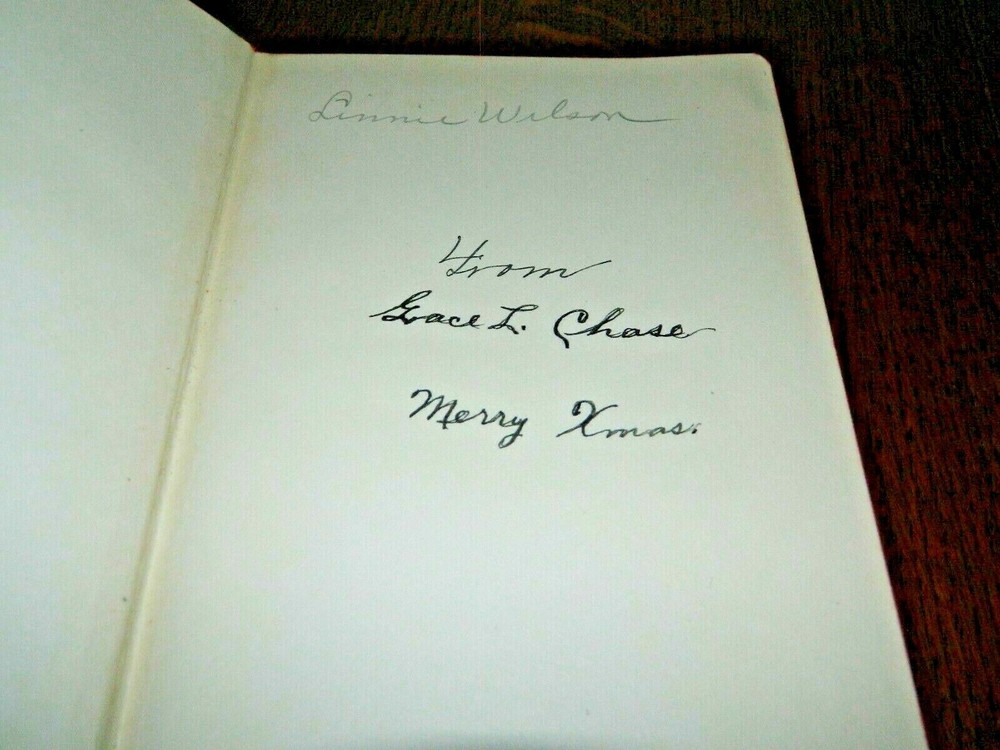 Linnie Wilson
From
Grace L. Chase
Merry Xmas.